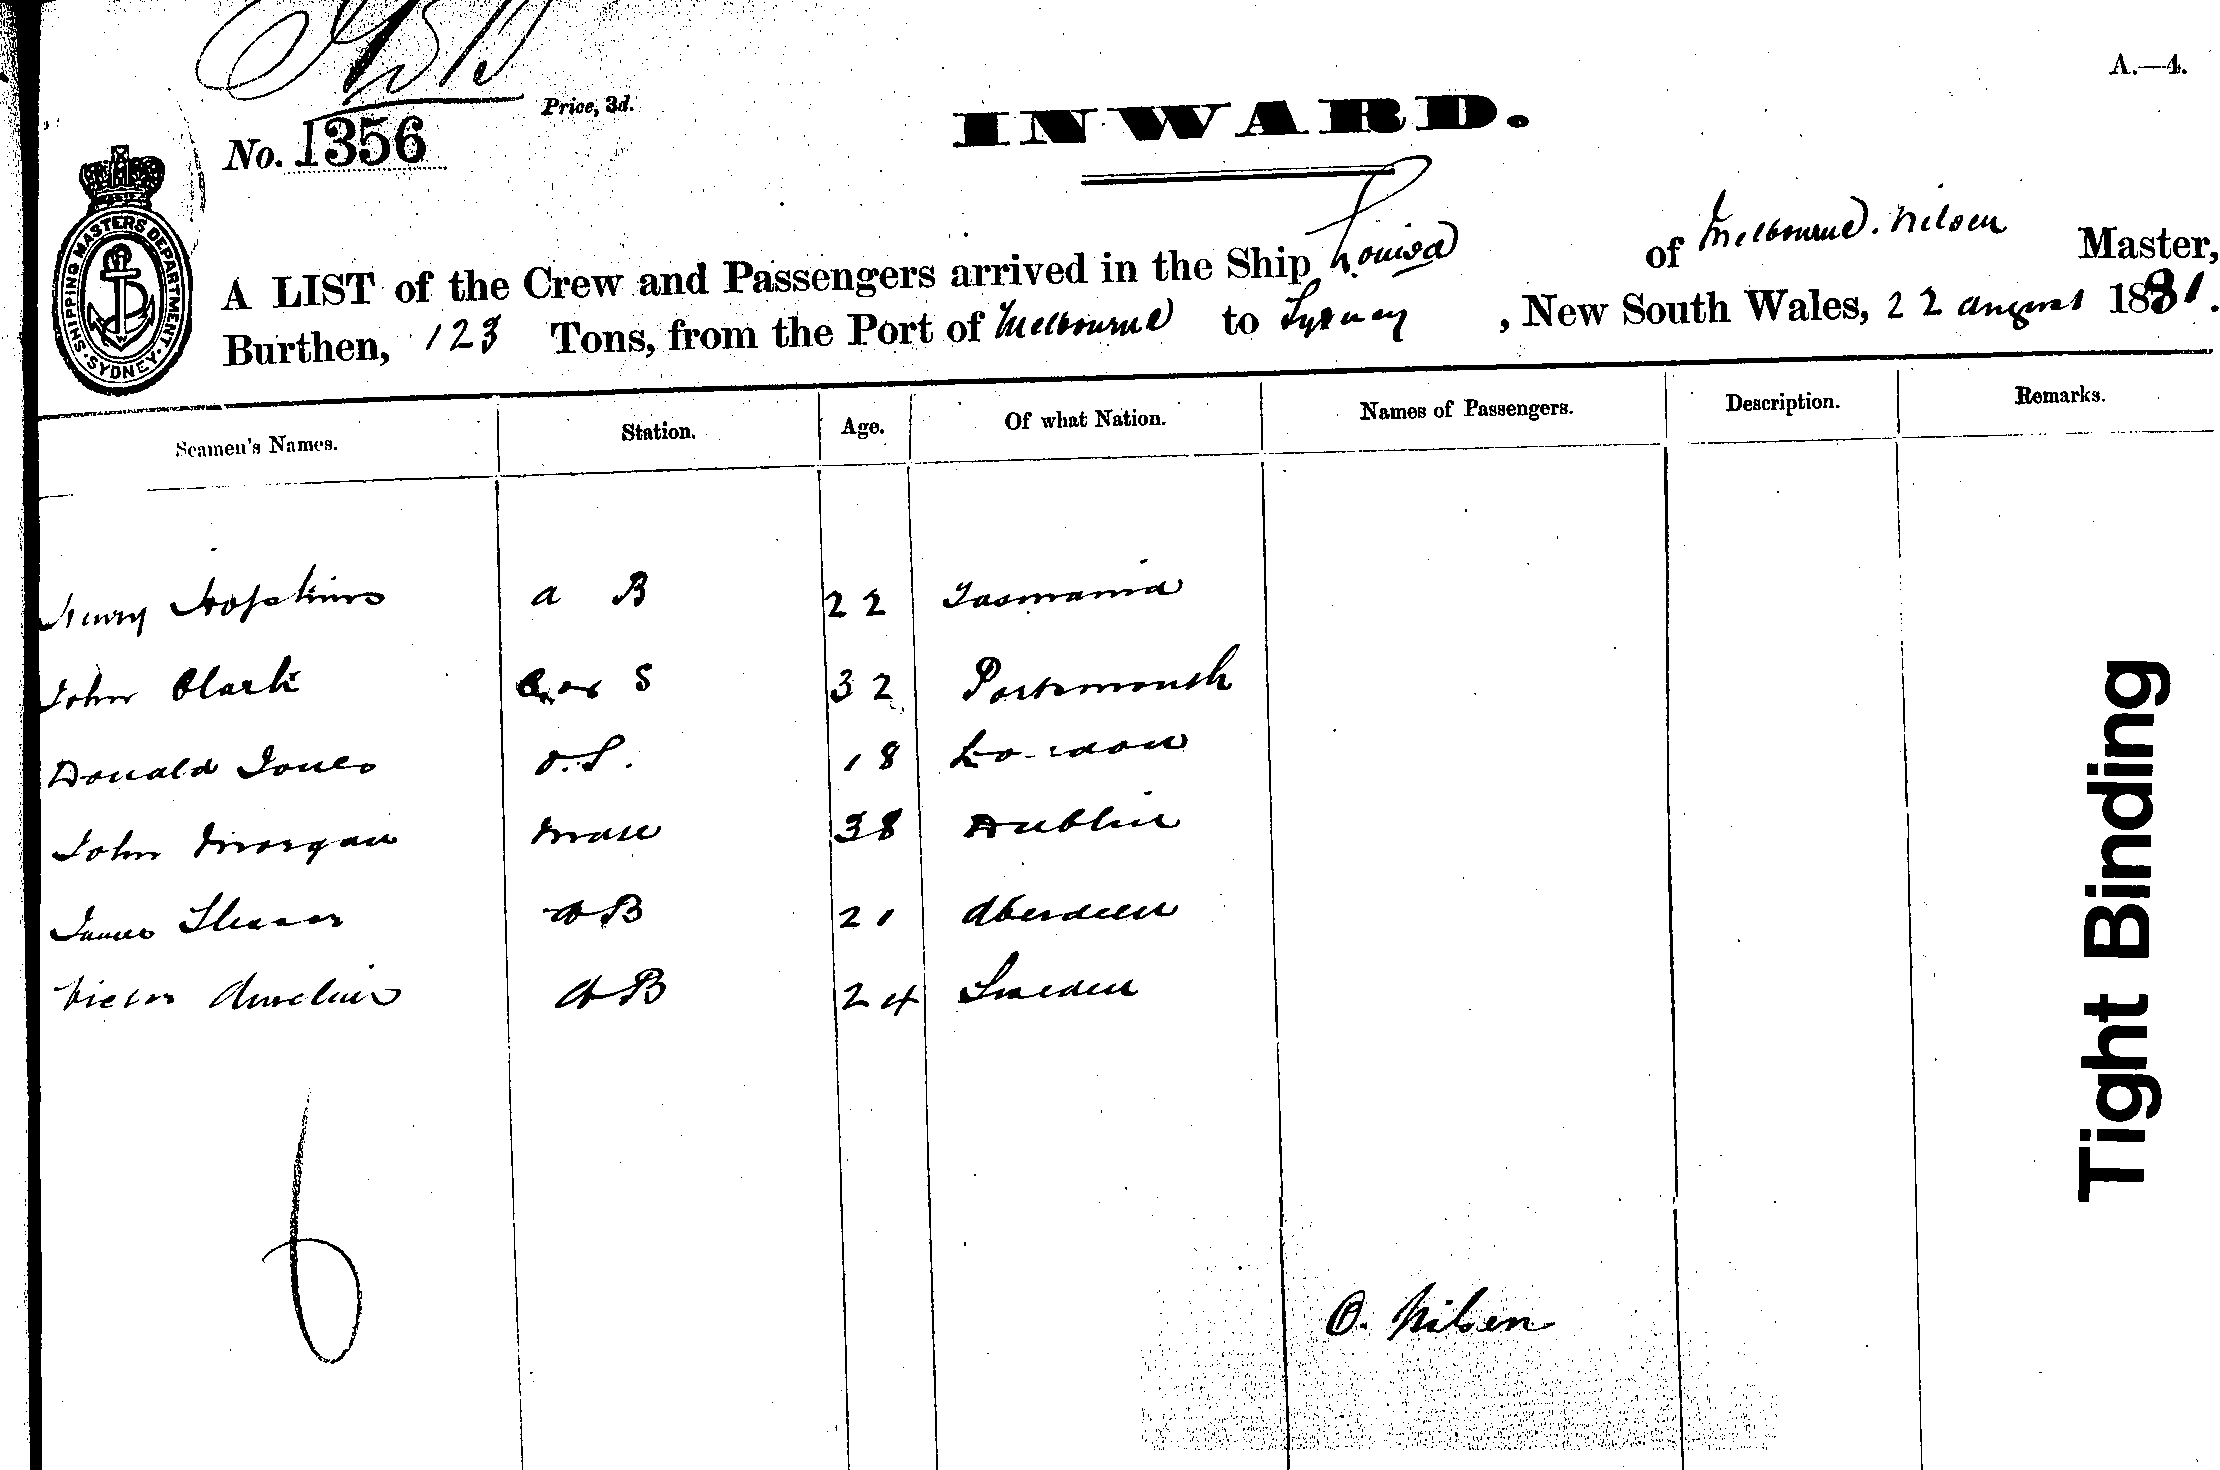 A.—4.
Price, 3d.
No. 1356
INWARD.
SHIPPING MASTERS DEPARTMENT. SYDNEY.
A LIST of the Crew and Passengers arrived in the Ship Louisa of Melbourne. Nilsen Master,
Burthen, 123 Tons, from the Port of Melbourne to Sydney, New South Wales, 22 august 1881.
Seamen's Names. Station. Age. Of what Nation. Names of Passengers. Description. Remarks.
Henry Hopkins a B 22 Tasmania
John Clark S 32 Portsmouth
Donald Jones O.S. 18 London
John Morgan Mate 38 Dublin
James AB 21 Aberdeen
Victor AB 24 Sweden
6
O. Nilsen
Tight Binding